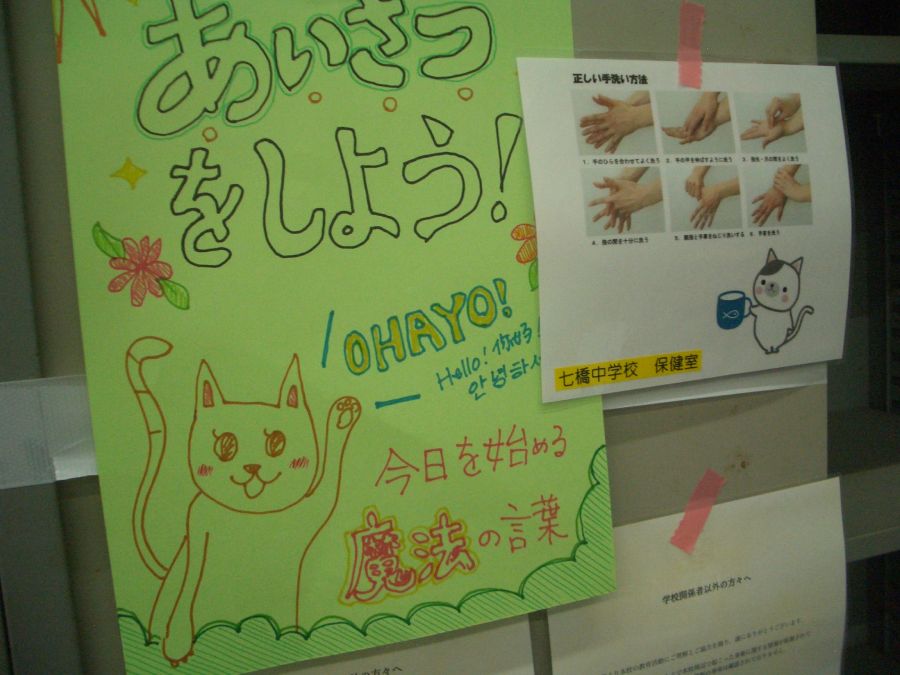 あいさつ
をしよう!
OHAYO!
Hello! 你好
안녕하세
今日を始める
魔法の言葉
正しい手洗い方法
1. 手のひらを合わせてよく洗う
2. 手の甲を伸ばすように洗う
3. 指先・爪の間をよく洗う
4. 指の間を十分に洗う
5. 親指と手掌をねじり洗いする
6. 手首を洗う
七橋中学校 保健室
学校関係者以外の方々へ
の方々へ